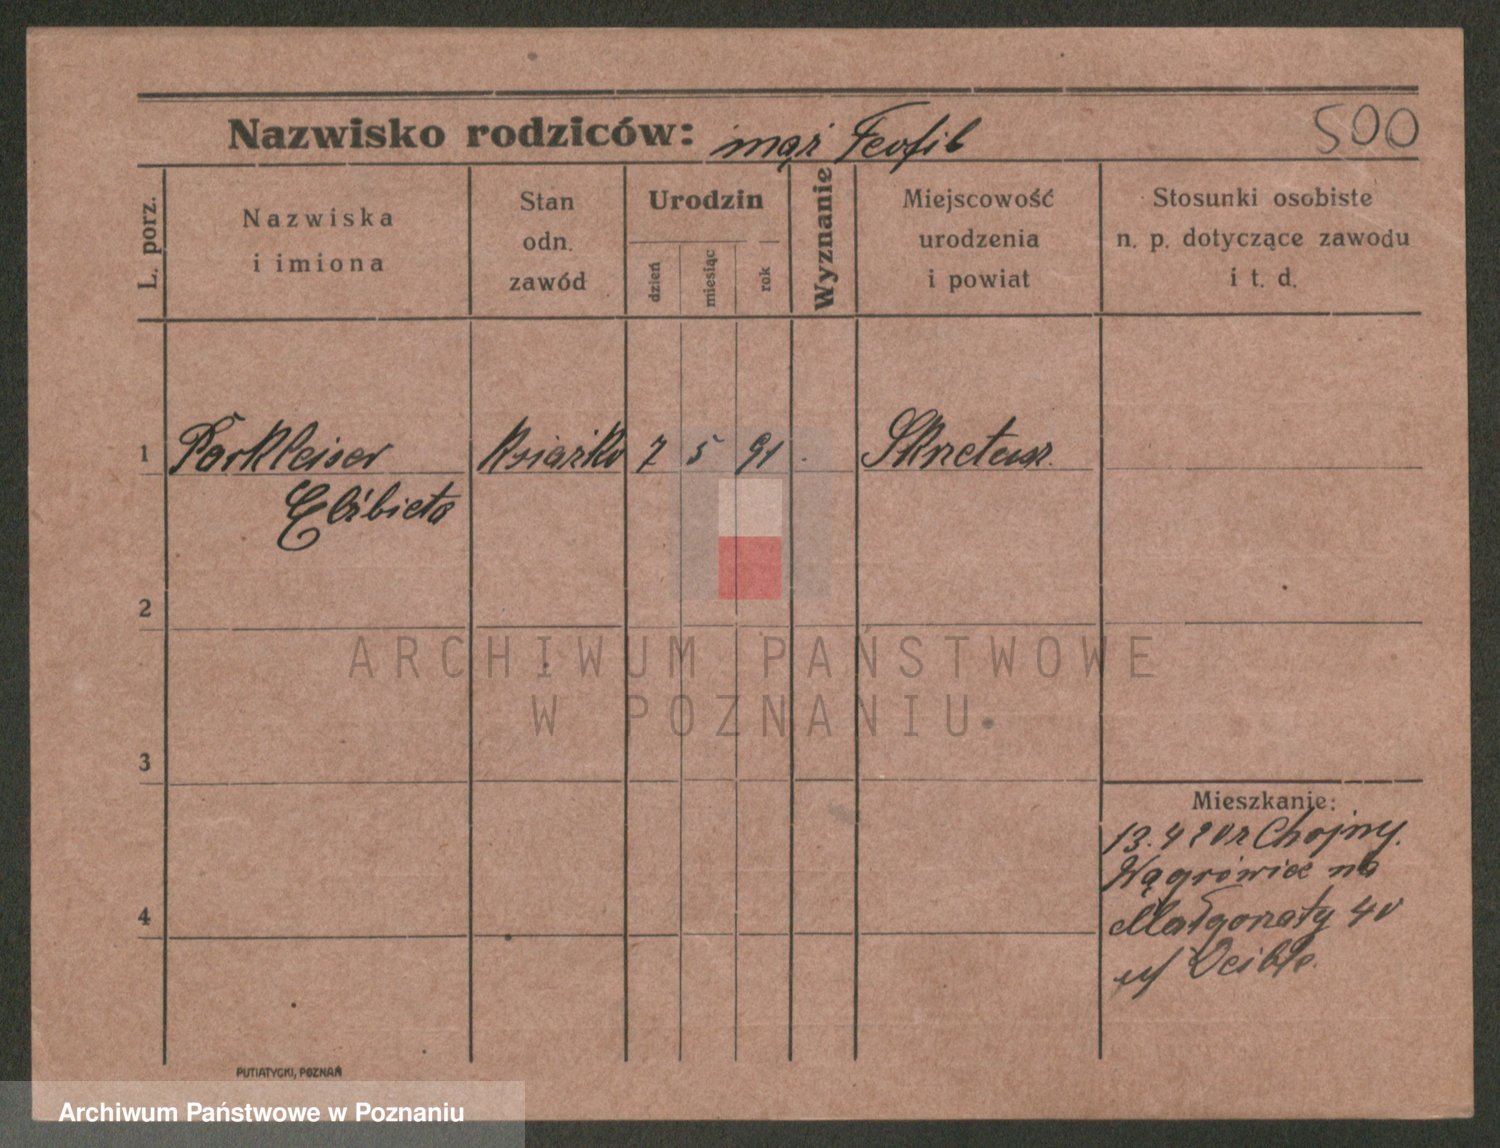 500
Nazwisko rodziców: mąż Teofil
L. porz.
Nazwiska
i imiona
Stan
odn.
zawód
Urodzin
dzień
miesiąc
rok
Wyznanie
Miejscowość
urodzenia
i powiat
Stosunki osobiste
n. p. dotyczące zawodu
i t. d.
1
książka 7 5 91
Elżbieta
2
ARCHIWUM PAŃSTWOWE
W POZNANIU
3
Mieszkanie:
13.4 Chojny.
Wągrówiec na
4
Małgorzaty
PUTIATYCKI, POZNAŃ
Archiwum Państwowe w Poznaniu